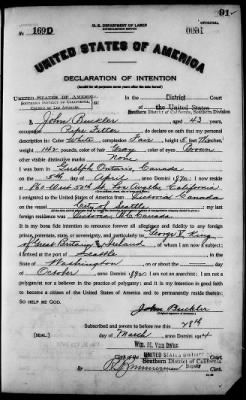 U. S. DEPARTMENT OF LABOR
NATURALIZATION SERVICE
ORIGINAL
91
No. 1690
UNITED STATES OF AMERICA
DECLARATION OF INTENTION
(Invalid for all purposes seven years after the date hereof)
UNITED STATES OF AMERICA,
In the District Court
of the United States
Southern District of California, Southern Division
I, John Buckler, aged 43 years,
occupation Pipe Fitter, do declare on oath that my personal
description is: Color White, complexion Fair, height feet inches,
weight 145 pounds, color of hair Gray, color of eyes Brown
other visible distinctive marks None
I was born in Guelph Ontario, Canada
on the day of April, anno Domini; I now reside
at West 50th St. Los Angeles California
I emigrated to the United States of America from Victoria Canada
on the vessel City of Seattle; my last
foreign residence was Victoria B.C. Canada
It is my bona fide intention to renounce forever all allegiance and fidelity to any foreign
prince, potentate, state, or sovereignty, and particularly to George V King
of Great Britain & Ireland, of whom I am now a subject; I
arrived at the port of Seattle, in the
State of Washington, on or about the day
of October, anno Domini; I am not an anarchist; I am not a
polygamist nor a believer in the practice of polygamy; and it is my intention in good faith
to become a citizen of the United States of America and to permanently reside therein:
SO HELP ME GOD.
John Buckler
Subscribed and sworn to before me this 28th
[SEAL.] day of March, anno Domini 1914
Wm. M. Van Dyke
Clerk
Southern District of California
By Zimmerman Deputy Clerk.